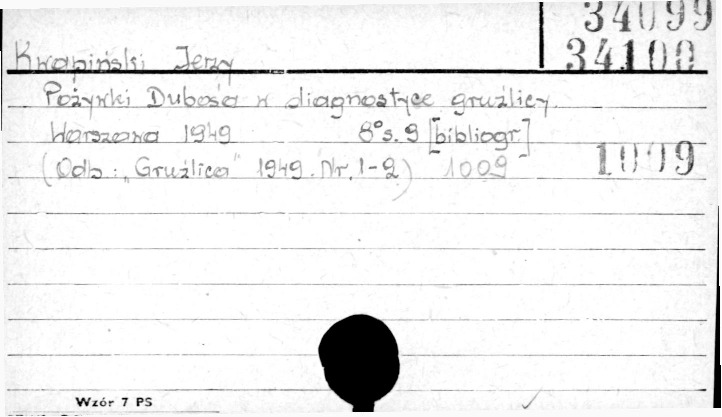 34099
34100
Kwapiński Jerzy
Pożywki Dubosa w diagnostyce gruźlicy.
Warszawa 1949 8° s. 9 [bibliogr.]
(Odb.: „Gruźlica" 1949. Nr. 1-2) 1009
1009
Wzór 7 PS